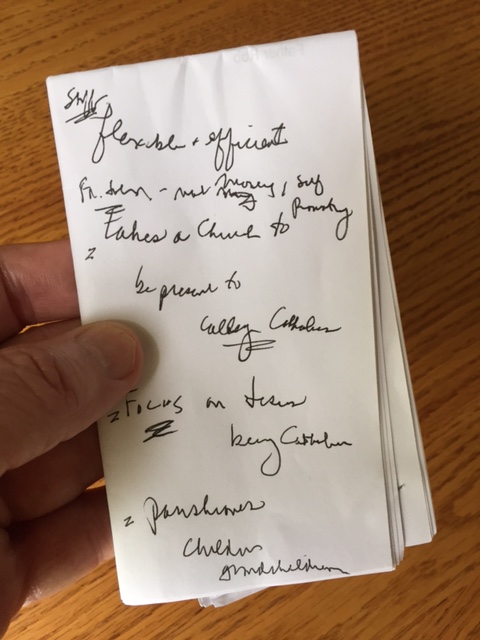 flexible + efficient
Fr. - not money, self
Takes a Church to
be present to
College Catholics
Focus on Jesus
being Catholic
Parishioners
Children
grandchildren